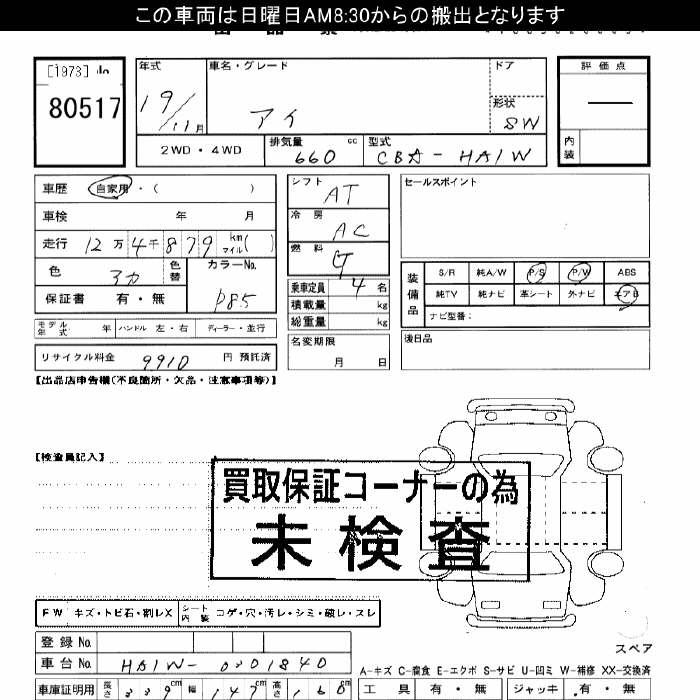 この車両は日曜日AM8:30からの搬出となります
[1973]
80517
年式
19/11月
車名・グレード
アイ
ドア
形状
SW
評価点
—
内装
2WD・4WD
排気量
660 cc
型式
CBA-HA1W
車歴 自家用・( )
車検 年 月
走行 12万4千879 km マイル( )
色 アカ 色替
カラーNo.
P85
保証書 有・無
モデル年式 年 ハンドル 左・右 ディーラー・並行
リサイクル料金 9910 円 預託済
シフト
AT
冷房
AC
燃料
G
乗車定員 4 名
積載量 kg
総重量 kg
名変期限
月 日
セールスポイント
装備品
S/R 純A/W P/S P/W ABS
純TV 純ナビ 革シート 外ナビ エアB
ナビ型番:
後日品
【出品店申告欄(不良箇所・欠品・注意事項等)】
【検査員記入】
買取保証コーナーの為
未検査
FW キズ・トビ石・割レX シート内装 コゲ・穴・汚レ・シミ・破レ・スレ
登録No.
車台No. HA1W-0301840
車庫証明用 長さ 339cm 幅 147cm 高さ 160cm
スペア
A-キズ C-腐食 E-エクボ S-サビ U-凹ミ W-補修 XX-交換済
工具 有・無 ジャッキ 有・無